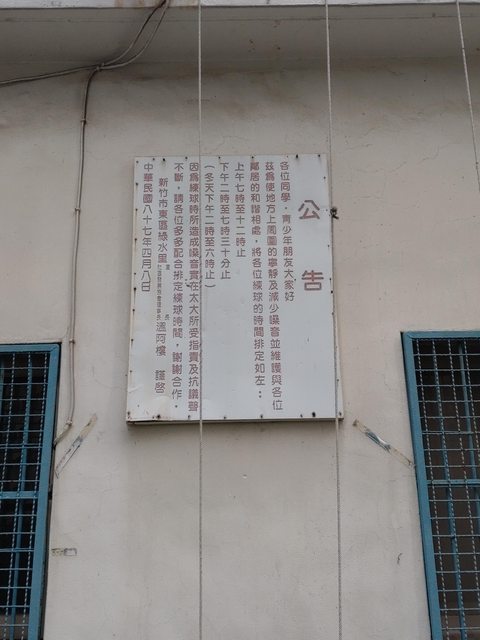 公告
各位同學，青少年朋友大家好
茲為使地方上周圍的寧靜及減少噪音並維護與各位
鄰居的和諧相處，將各位練球的時間排定如左：
上午七時至十二時止
下午二時至七時三十分止
（冬天下午二時至六時止）
因為練球時所造成噪音實在太大所受指責及抗議聲
不斷，請各位多多配合排定練球時間，謝謝合作。
新竹市東區綠水里里長
社區發展協會理事長溫阿樓 謹啓
中華民國八十七年四月八日